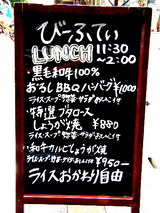 びーふてぃ
LUNCH 11:30
~2:00
・黒毛和牛100%
おろしBBQハンバーグ ¥1,000
ライス・スープ・惣菜・サラダ・おしんこ付
・特選ブタロース
しょうが焼 ¥880
ライス・スープ・惣菜・サラダ・おしんこ付
・和牛カルビしょうが焼
¥950-
ライスおかわり自由